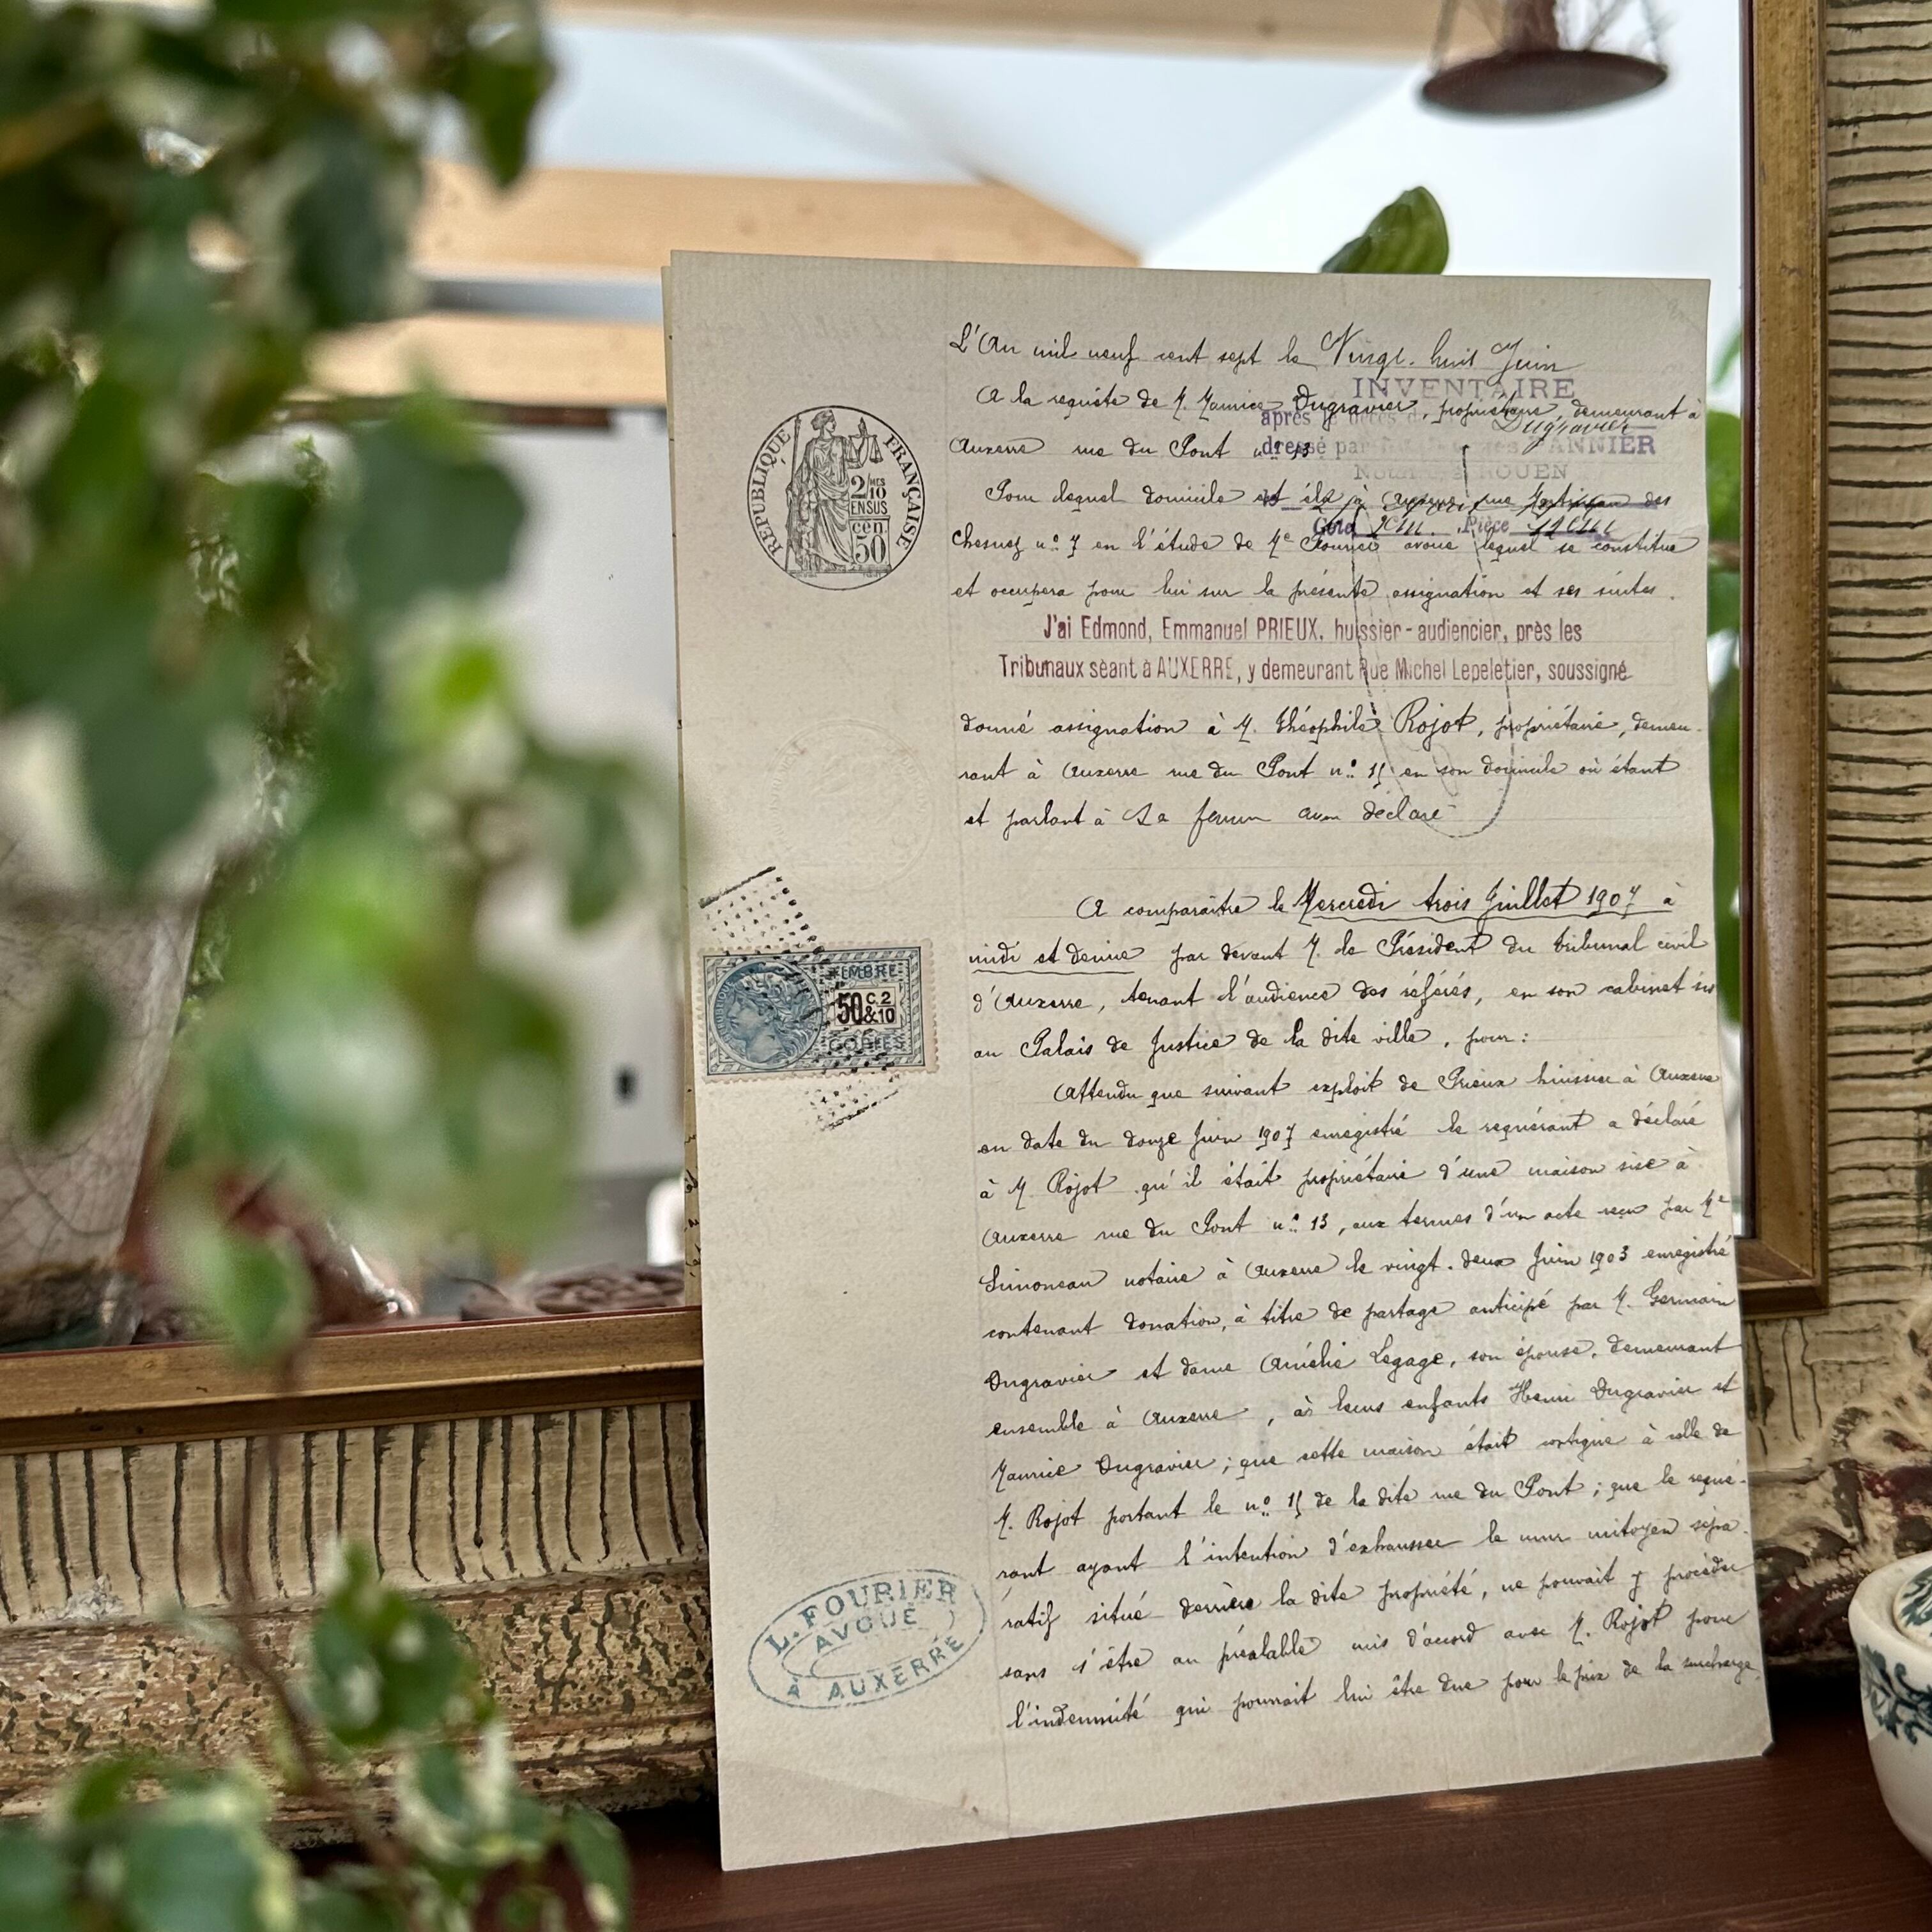 L'An mil neuf cent sept le Vingt-huit Juin
INVENTAIRE
A la requête de M. Maurice Dugravier, propriétaire, demeurant à
après le décès d
Dugravier
Auxerre rue du Pont n° 13
dressé par ANNIER
Notaire à ROUEN
Pour lequel domicile est élu à Auxerre rue des
Cote Pièce
Chesnez n° 7 en l'étude de Me Fourier avoué lequel se constitue
et occupera pour lui sur la présente assignation et ses suites.
J'ai Edmond, Emmanuel PRIEUX, huissier-audiencier, près les
Tribunaux séant à AUXERRE, y demeurant Rue Michel Lepeletier, soussigné
donné assignation à M. Théophile Rojot, propriétaire, demeu-
rant à Auxerre rue du Pont n° 15 en son domicile où étant
et parlant à Sa femme déclaré
A comparaître le Mercredi trois Juillet 1907 à
midi et demie par devant M. le Président du tribunal civil
d'Auxerre, tenant l'audience des référés, en son cabinet sis
au Palais de Justice de la dite ville, pour :
Attendu que suivant exploit de Prieux huissier à Auxerre
en date du douze Juin 1907 enregistré le requérant a déclaré
à M. Rojot qu'il était propriétaire d'une maison sise à
Auxerre rue du Pont n° 13, aux termes d'un acte reçu par Me
Limoneau notaire à Auxerre le vingt-deux Juin 1903 enregistré
contenant donation, à titre de partage anticipé par M. Germain
Dugravier et dame Amélie Legage, son épouse, demeurant
ensemble à Auxerre, à leurs enfants Henri Dugravier et
Maurice Dugravier ; que cette maison était contigue à celle de
M. Rojot portant le n° 15 de la dite rue du Pont ; que le requé-
rant ayant l'intention d'exhausser le mur mitoyen sépa-
ratif situé derrière la dite propriété, ne pouvait y procéder
sans s'être au préalable mis d'accord avec M. Rojot pour
l'indemnité qui pourrait lui être due pour le prix de la surcharge
RÉPUBLIQUE FRANÇAISE
2/10 EN SUS
50 cen
TIMBRE
50 C. 2
&10
COPIES
L. FOURIER
AVOUÉ
À AUXERRE